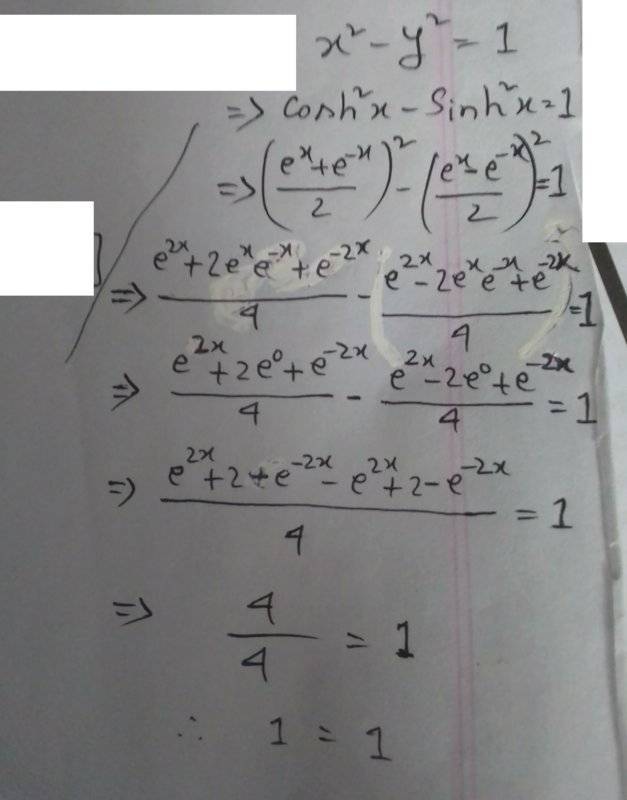 x² - y² = 1
=> Cosh²x - Sinh²x = 1
=> ((eˣ + e⁻ˣ)/2)² - ((eˣ - e⁻ˣ)/2)² = 1
=> (e²ˣ + 2eˣe⁻ˣ + e⁻²ˣ)/4 - (e²ˣ - 2eˣe⁻ˣ + e⁻²ˣ)/4 = 1
=> (e²ˣ + 2e⁰ + e⁻²ˣ)/4 - (e²ˣ - 2e⁰ + e⁻²ˣ)/4 = 1
=> (e²ˣ + 2 + e⁻²ˣ - e²ˣ + 2 - e⁻²ˣ)/4 = 1
=> 4/4 = 1
∴ 1 = 1